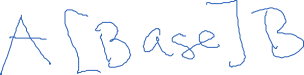 A [Base] B